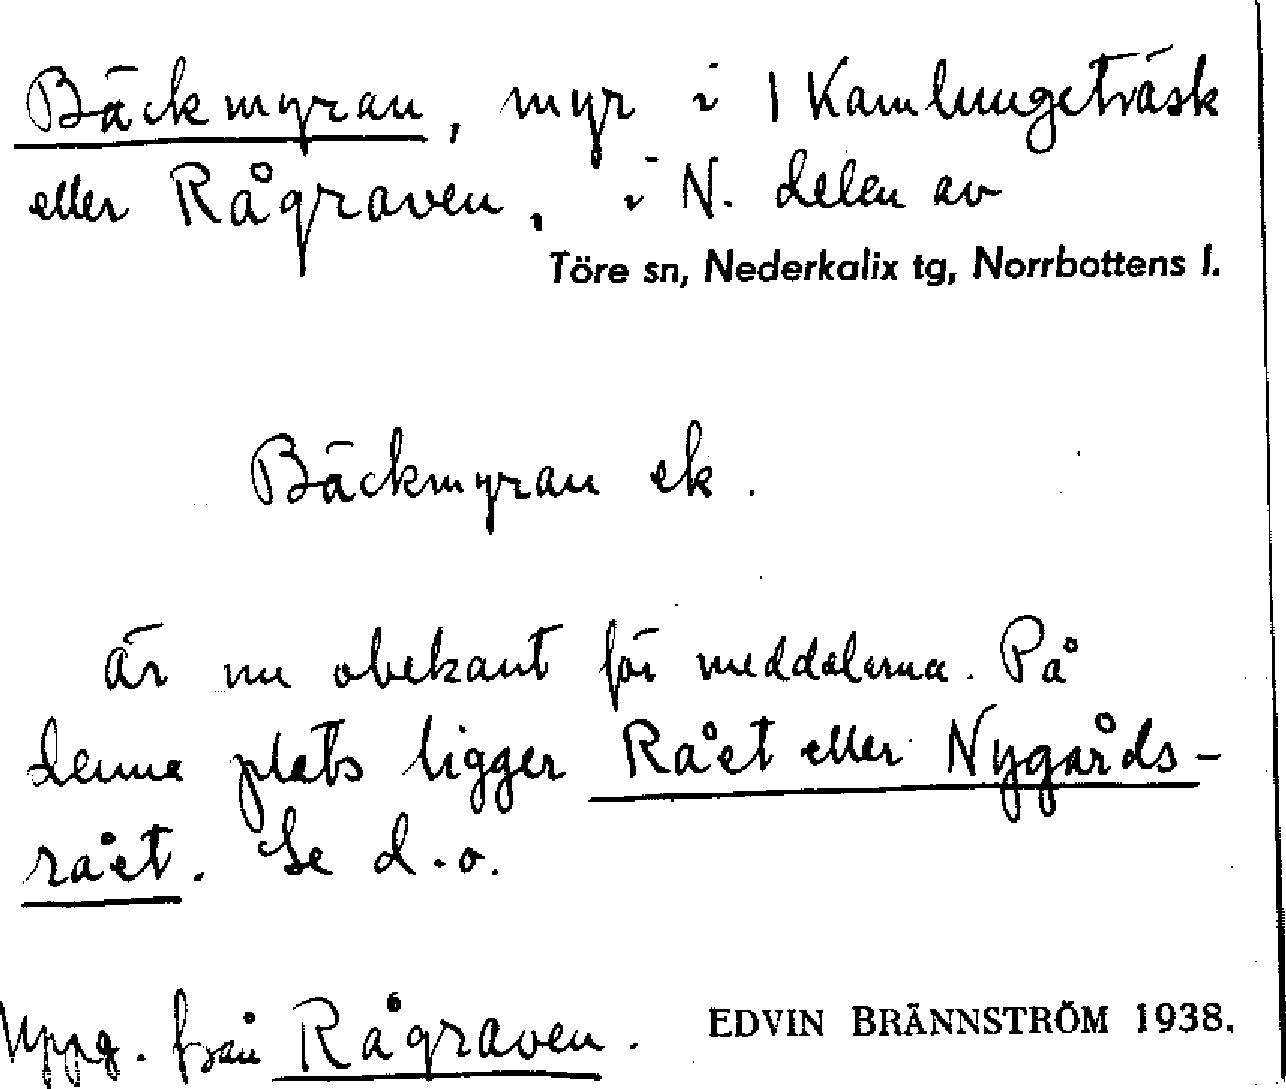 Bäckmyran, myr i 1 Kamlungeträsk
eller Rågraven, i N. delen av
Töre sn, Nederkalix tg, Norrbottens l.
Bäckmyran ek.
Är nu obekant för meddelarna. På
denna plats ligger Råët eller Nygårds-
råët. Se d.o.
Uppg. från Rågraven.
EDVIN BRÄNNSTRÖM 1938.